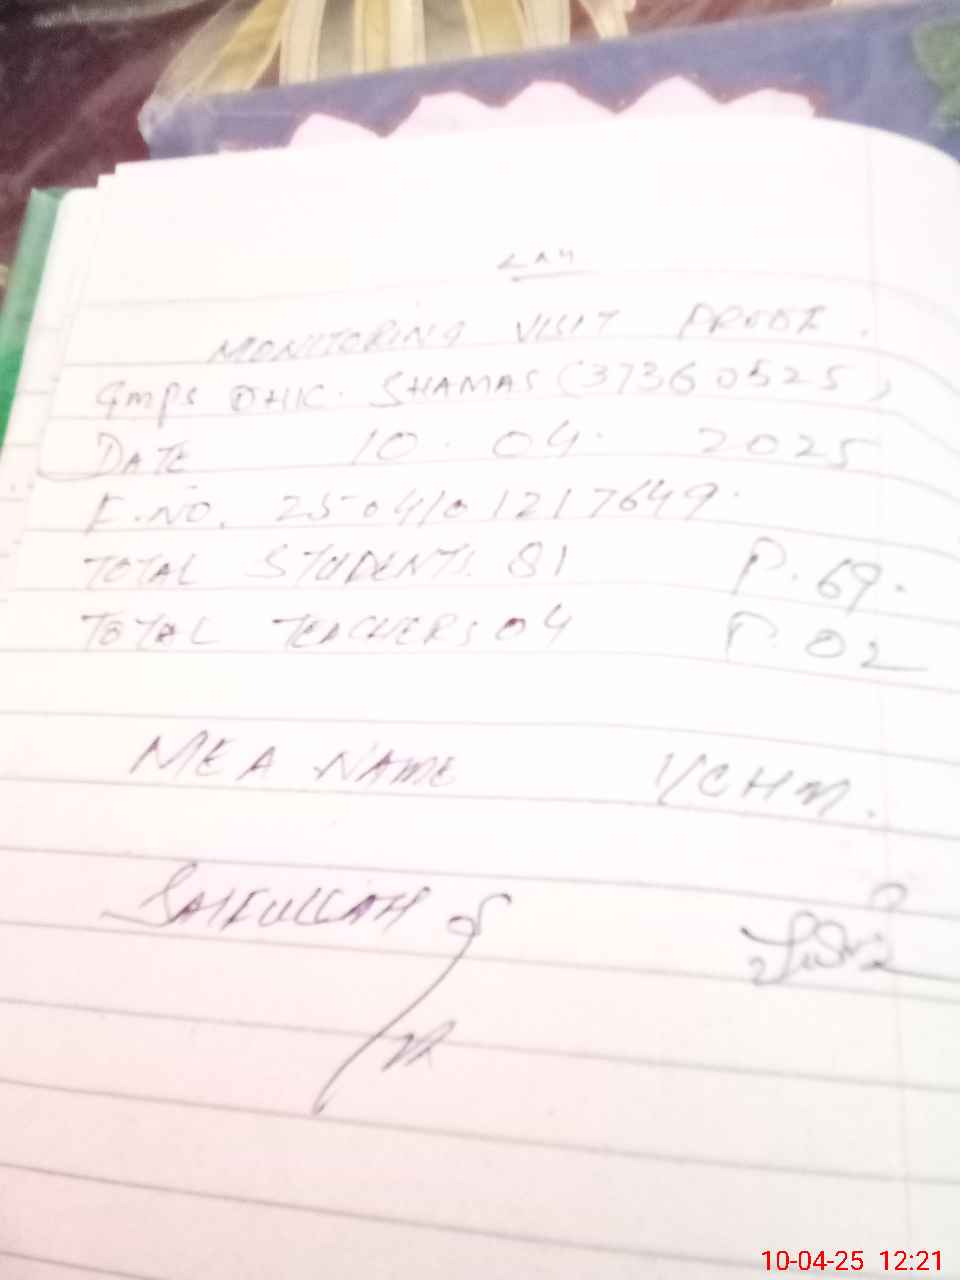 MONITORING VISIT PROOF.
GMPS DHIC. SHAMAS (37360525)
DATE 10.04.2025
F.NO. 2504101217649.
TOTAL STUDENTS. 81 P.69.
TOTAL TEACHERS 04 P.02
MEA NAME I/CHM.
SAIFULLAH
10-04-25 12:21